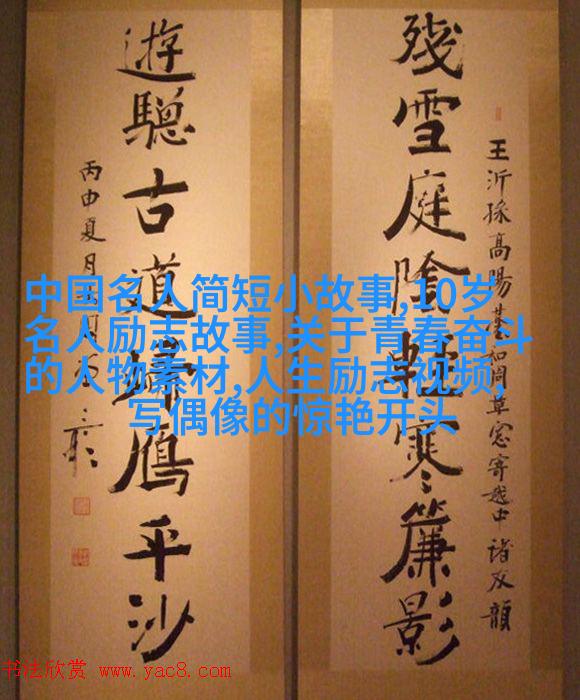 殘雪庭陰輕寒簾影
王沂孫高陽臺和周草窓寄越中諸友韻
遊驄古道歸鴈平沙
丙申夏月
中国名人简短小故事,10岁
名人励志故事,关于青春奋斗
的人物素材,人生励志视频,
写偶像的惊艳开头
书法欣赏 www.yac8.com